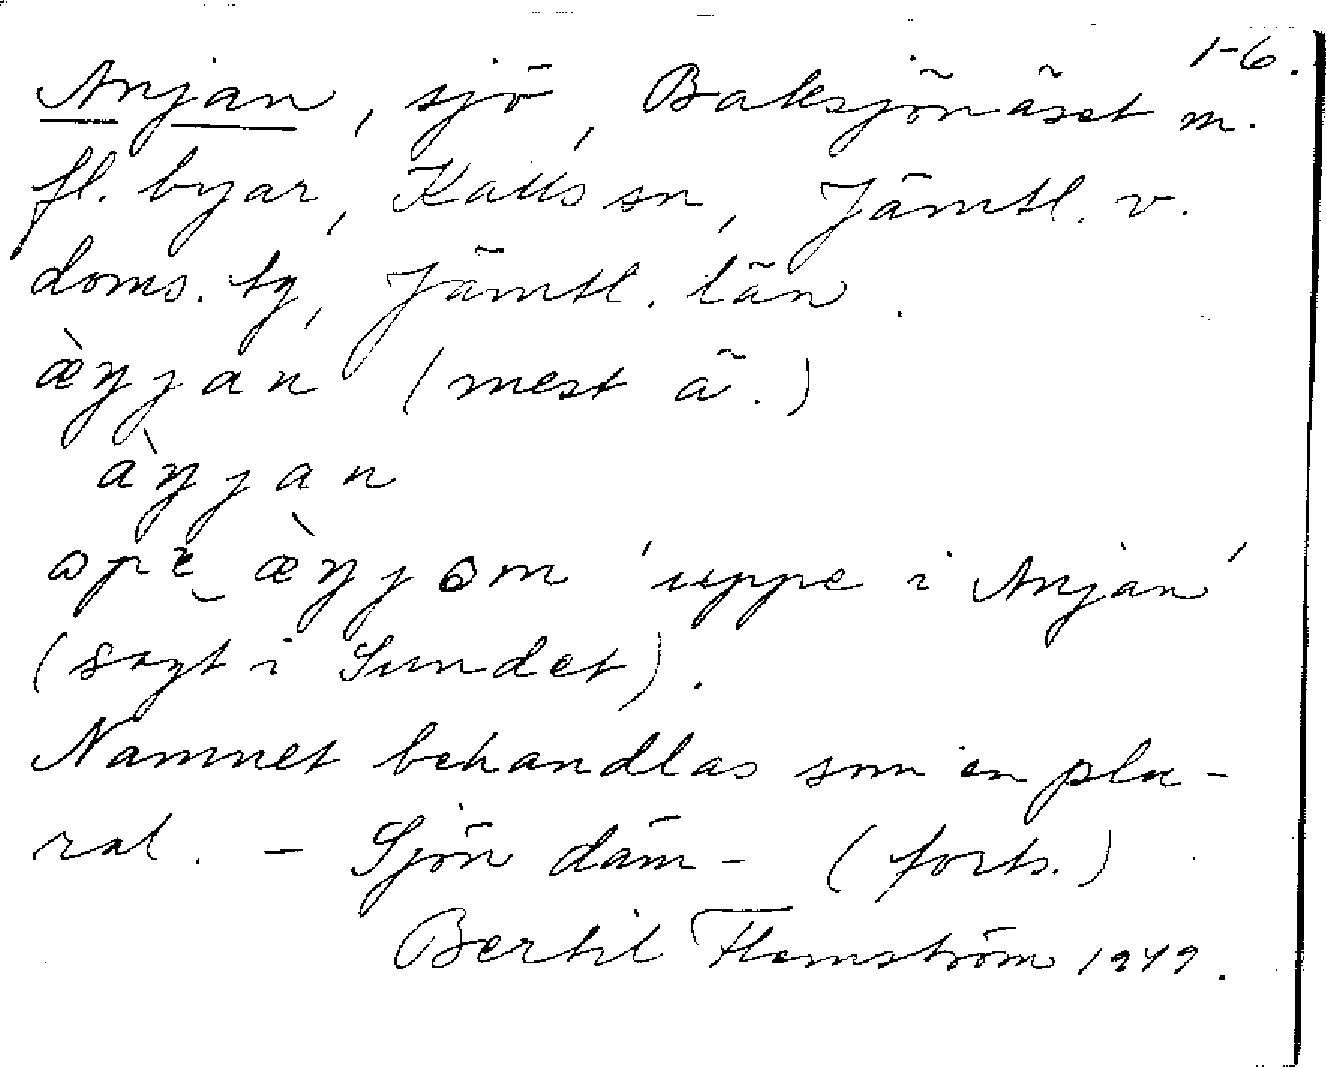 1-6.
Anjan, sjö, Baksjönäset m.
fl. byar, Kalls sn, Jämtl. v.
doms. tg, Jämtl. län.
æ̀ŋjan (mest ä.)
àŋjan
æ̀ŋjom 'uppe i Anjan'
(sagt i Sundet).
Namnet behandlas som en plu-
ral. - Sjön däm- (forts.)
Bertil Flemström 1949.